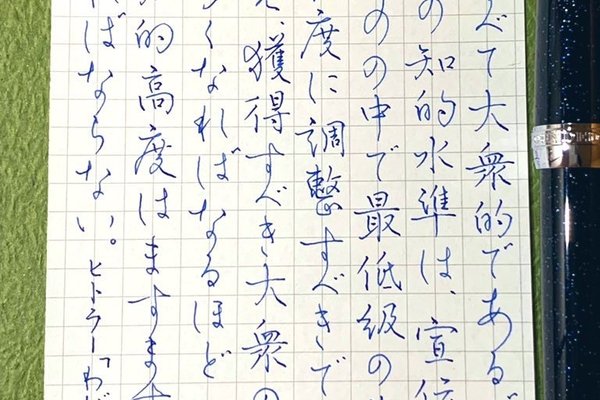 べて大衆的であるべ
の知的水準は、宣伝
のの中で最低級の
度に調整すべきで
、獲得すべき大衆の
くなればなるほど
的高度はますます
ばならない。ヒトラー「わが